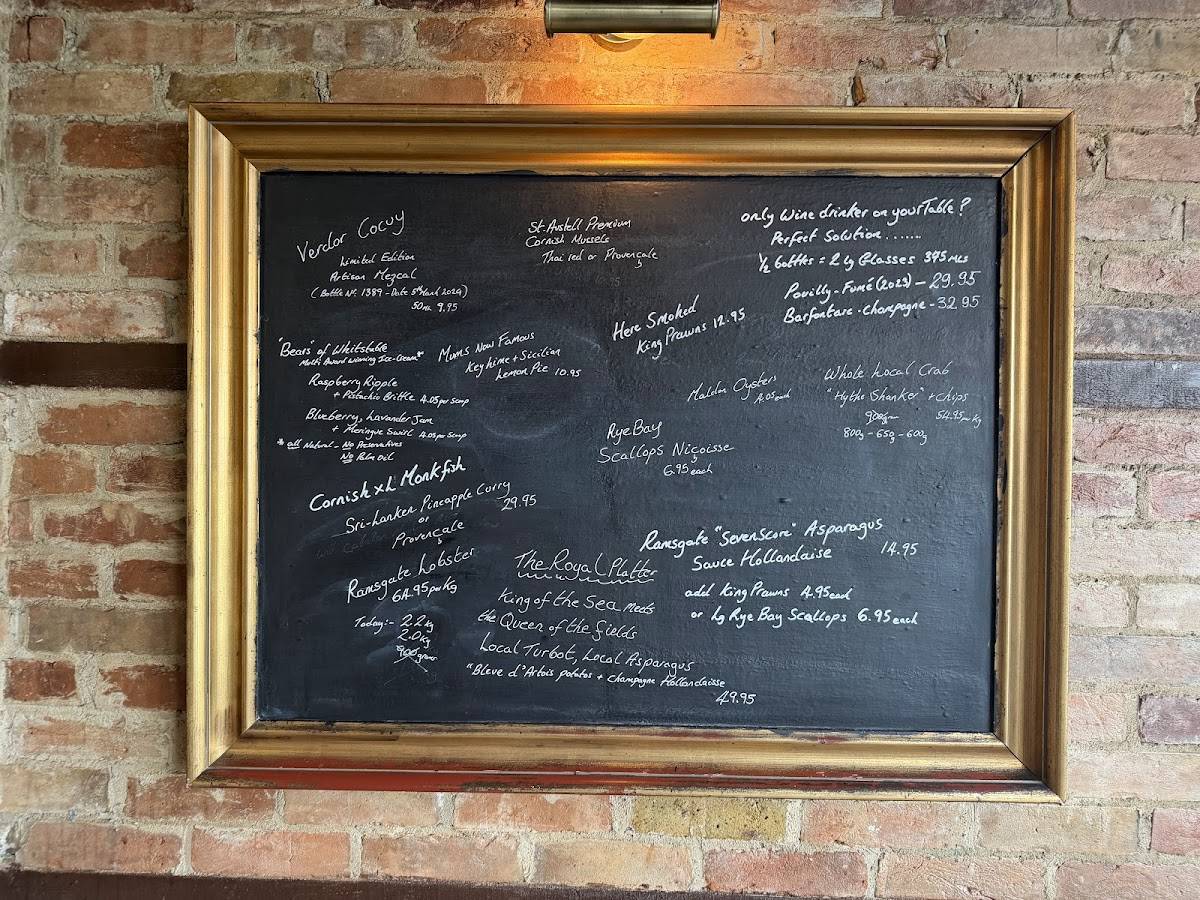 Verdor Cocuy
Limited Edition
Artisan Mezcal
(Bottle No. 1389 - Date 5th March 2024)
50ml 9.95
St. Austell Premium
Cornish Mussels
Thai red or Provençale
only Wine drinker on your Table?
Perfect Solution.......
½ bottles = 2 lg Glasses 375 mls
Pouilly-Fumé (2023) - 29.95
Barfontarc - Champagne - 32.95
Here Smoked
King Prawns 12.95
"Bears" of Whitstable
Multi Award Winning Ice-Cream*
Raspberry Ripple
+ Pistachio Brittle 4.05 per scoop
Blueberry, Lavander Jam
+ Meringue Swirl 4.05 per scoop
* all Natural - No Preservatives
No Palm Oil
Mums Now Famous
Key Lime + Sicilian
Lemon Pie 10.95
Maldon Oysters
4.05 each
Whole Local Crab
"Hythe Shanker" + Chips
900gm 54.95 per Kg
800g - 650g - 600g
Rye Bay
Scallops Nicoisse
6.95 each
Cornish XL Monkfish
Sri-Lanken Pineapple Curry
or 29.95
Provençale
Ramsgate Lobster
64.95 per Kg
Today:- 2.2kg
2.0kg
900grams
Ramsgate "Sevenscore" Asparagus
Sauce Hollandaise 14.95
add King Prawns 4.95 each
or lg Rye Bay Scallops 6.95 each
The Royal Platter
King of the Sea Meets
the Queen of the fields
Local Turbot, Local Asparagus
"Bleue d'Artois potatos + Champagne Hollandaisse
49.95